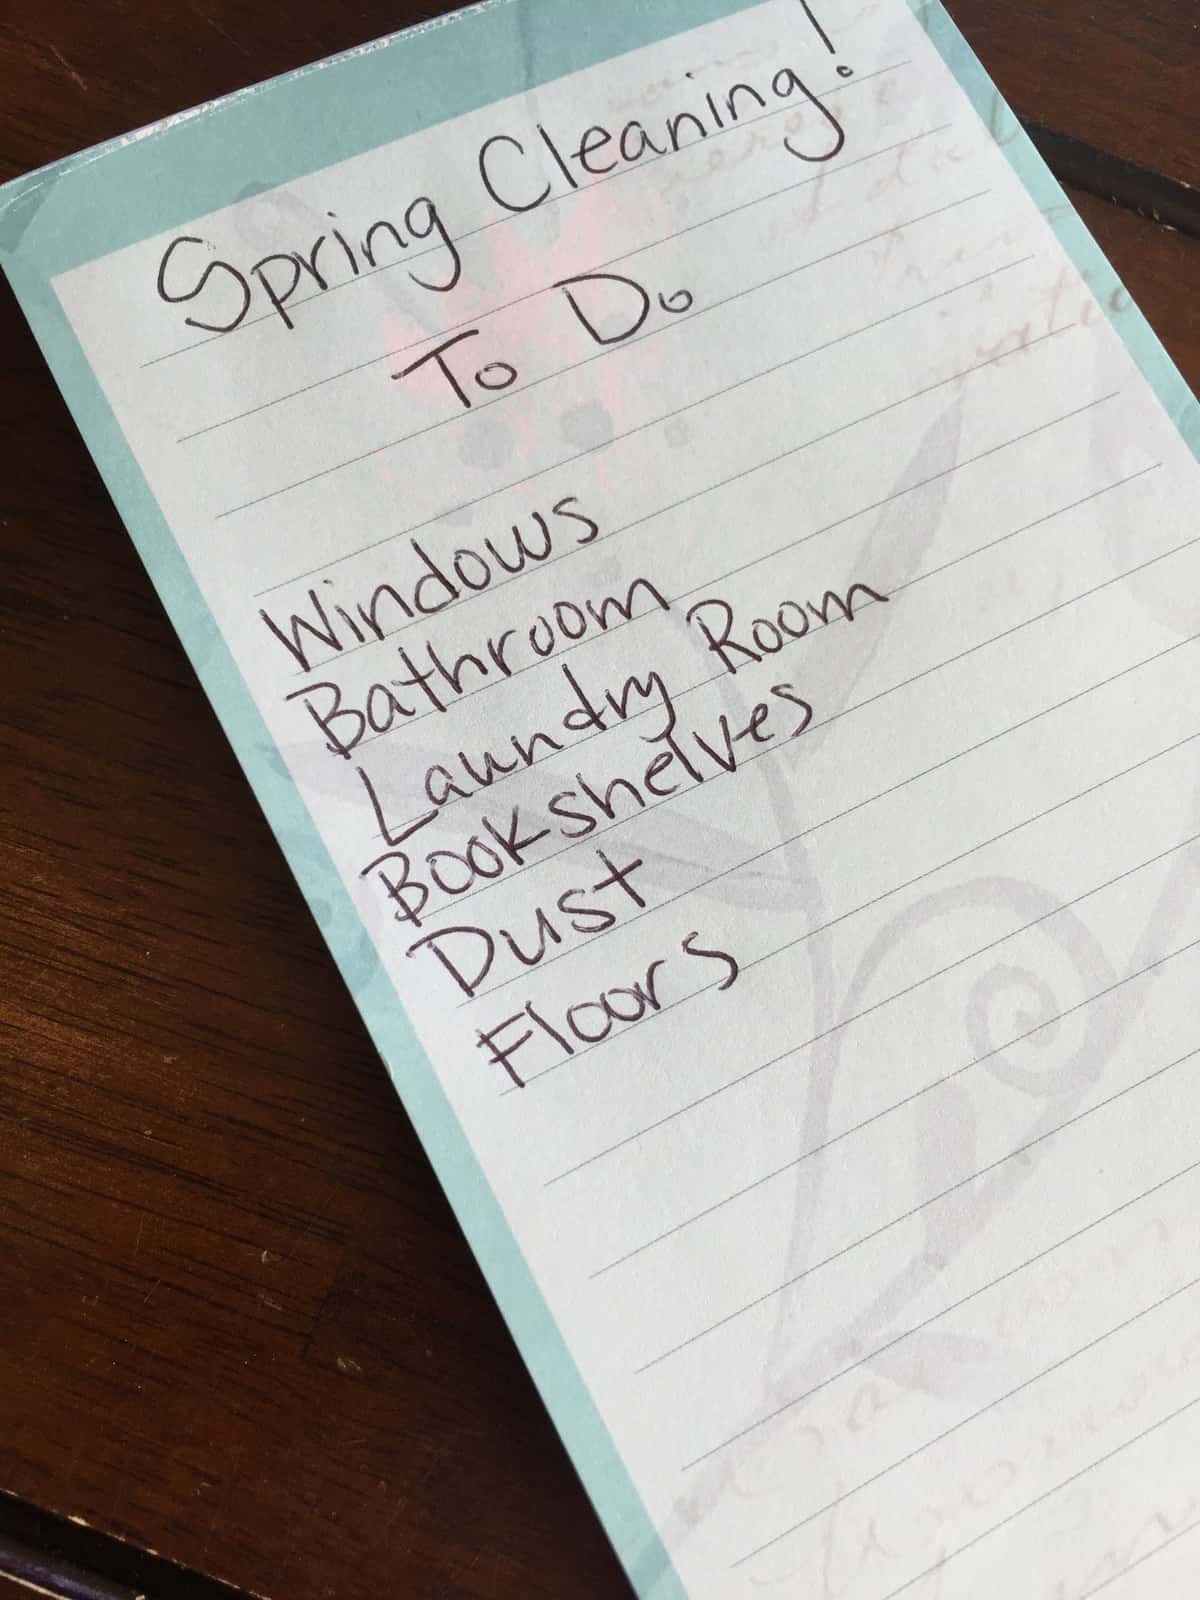 Spring Cleaning!
To Do
Windows
Bathroom
Laundry Room
Bookshelves
Dust
Floors